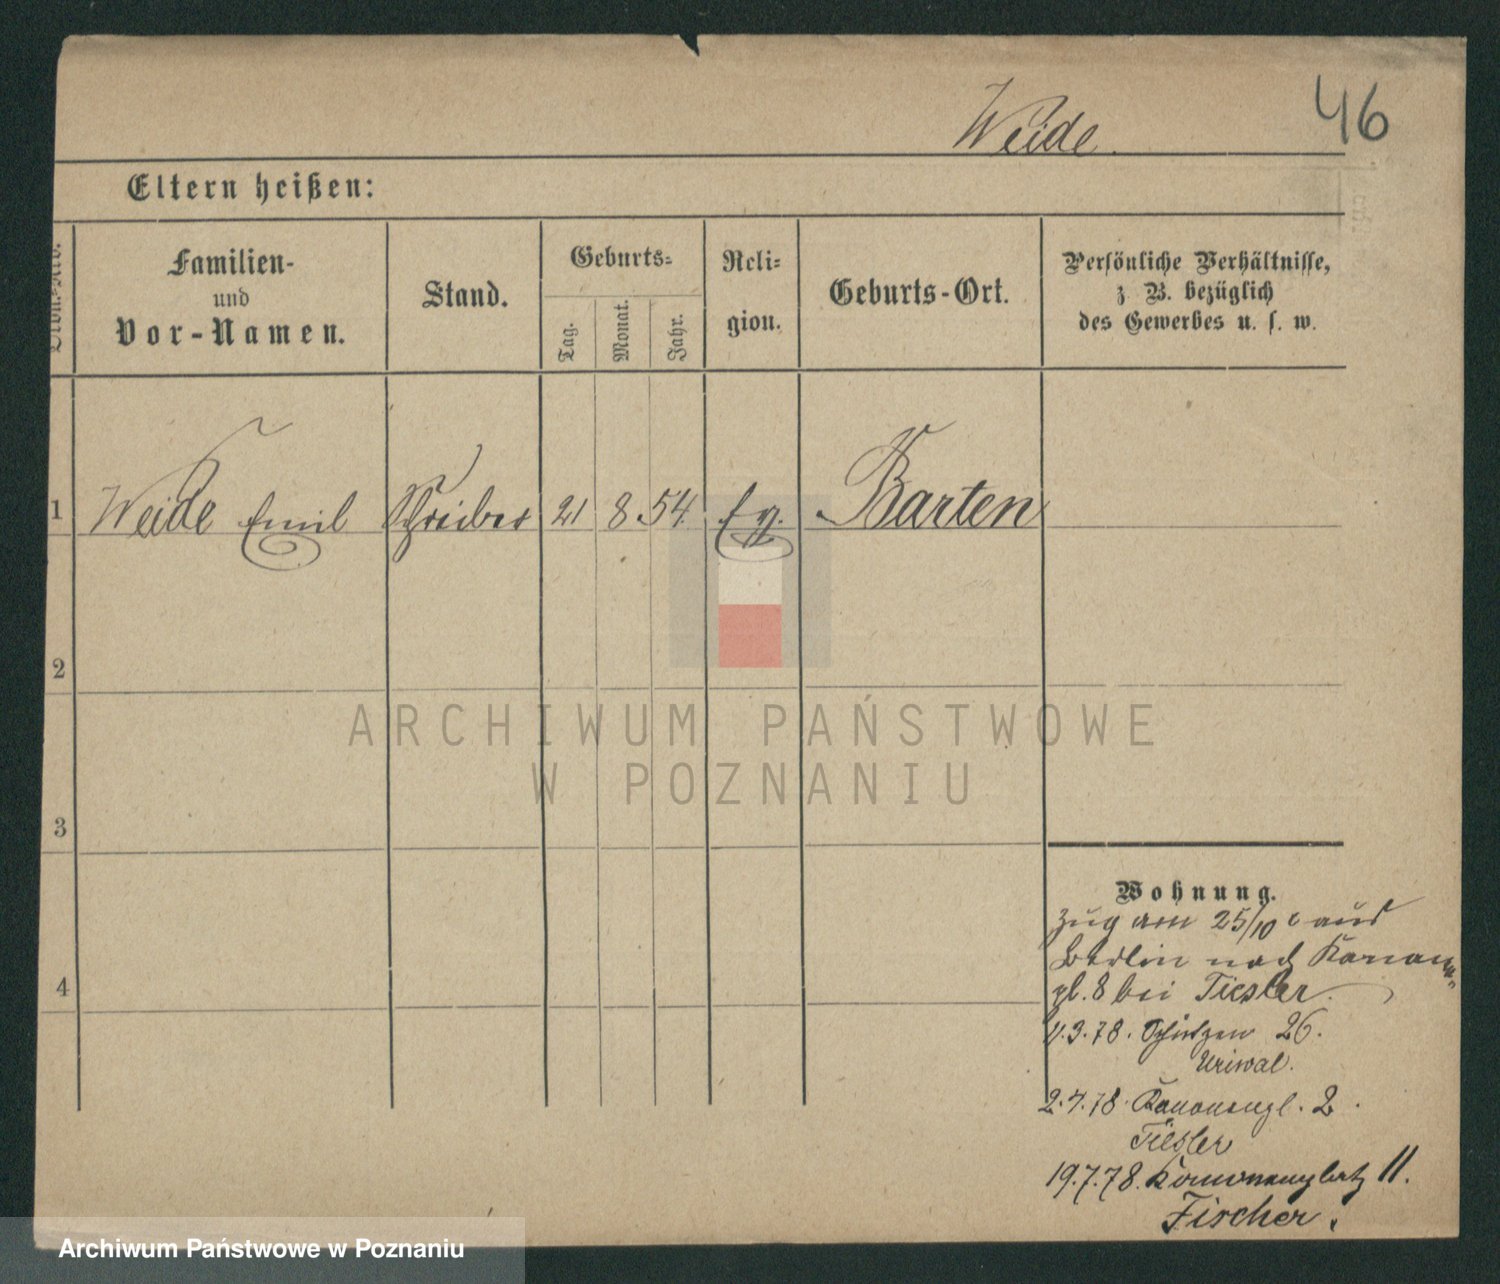 46
Weide
Eltern heißen:
Familien-
und
Vor-Namen.
Stand.
Geburts-
Tag.
Monat.
Jahr.
Reli-
gion.
Geburts-Ort.
Persönliche Verhältnisse,
z B. bezüglich
des Gewerbes u. s. w.
1 Weide Emil Schreiber 21 8. 54. Eg. Barten
2
3
4
ARCHIWUM PAŃSTWOWE
W POZNANIU
Wohnung.
Zug am 25/10 c aus
Berlin nach Kanonen-
pl. 8 bei Tiesler.
4.3.78. Schützen 26.
Uriwal.
2.7.78. Kanonenpl. 2.
Tiesler
19.7.78. Kanonenplatz 11.
Fischer.
Archiwum Państwowe w Poznaniu